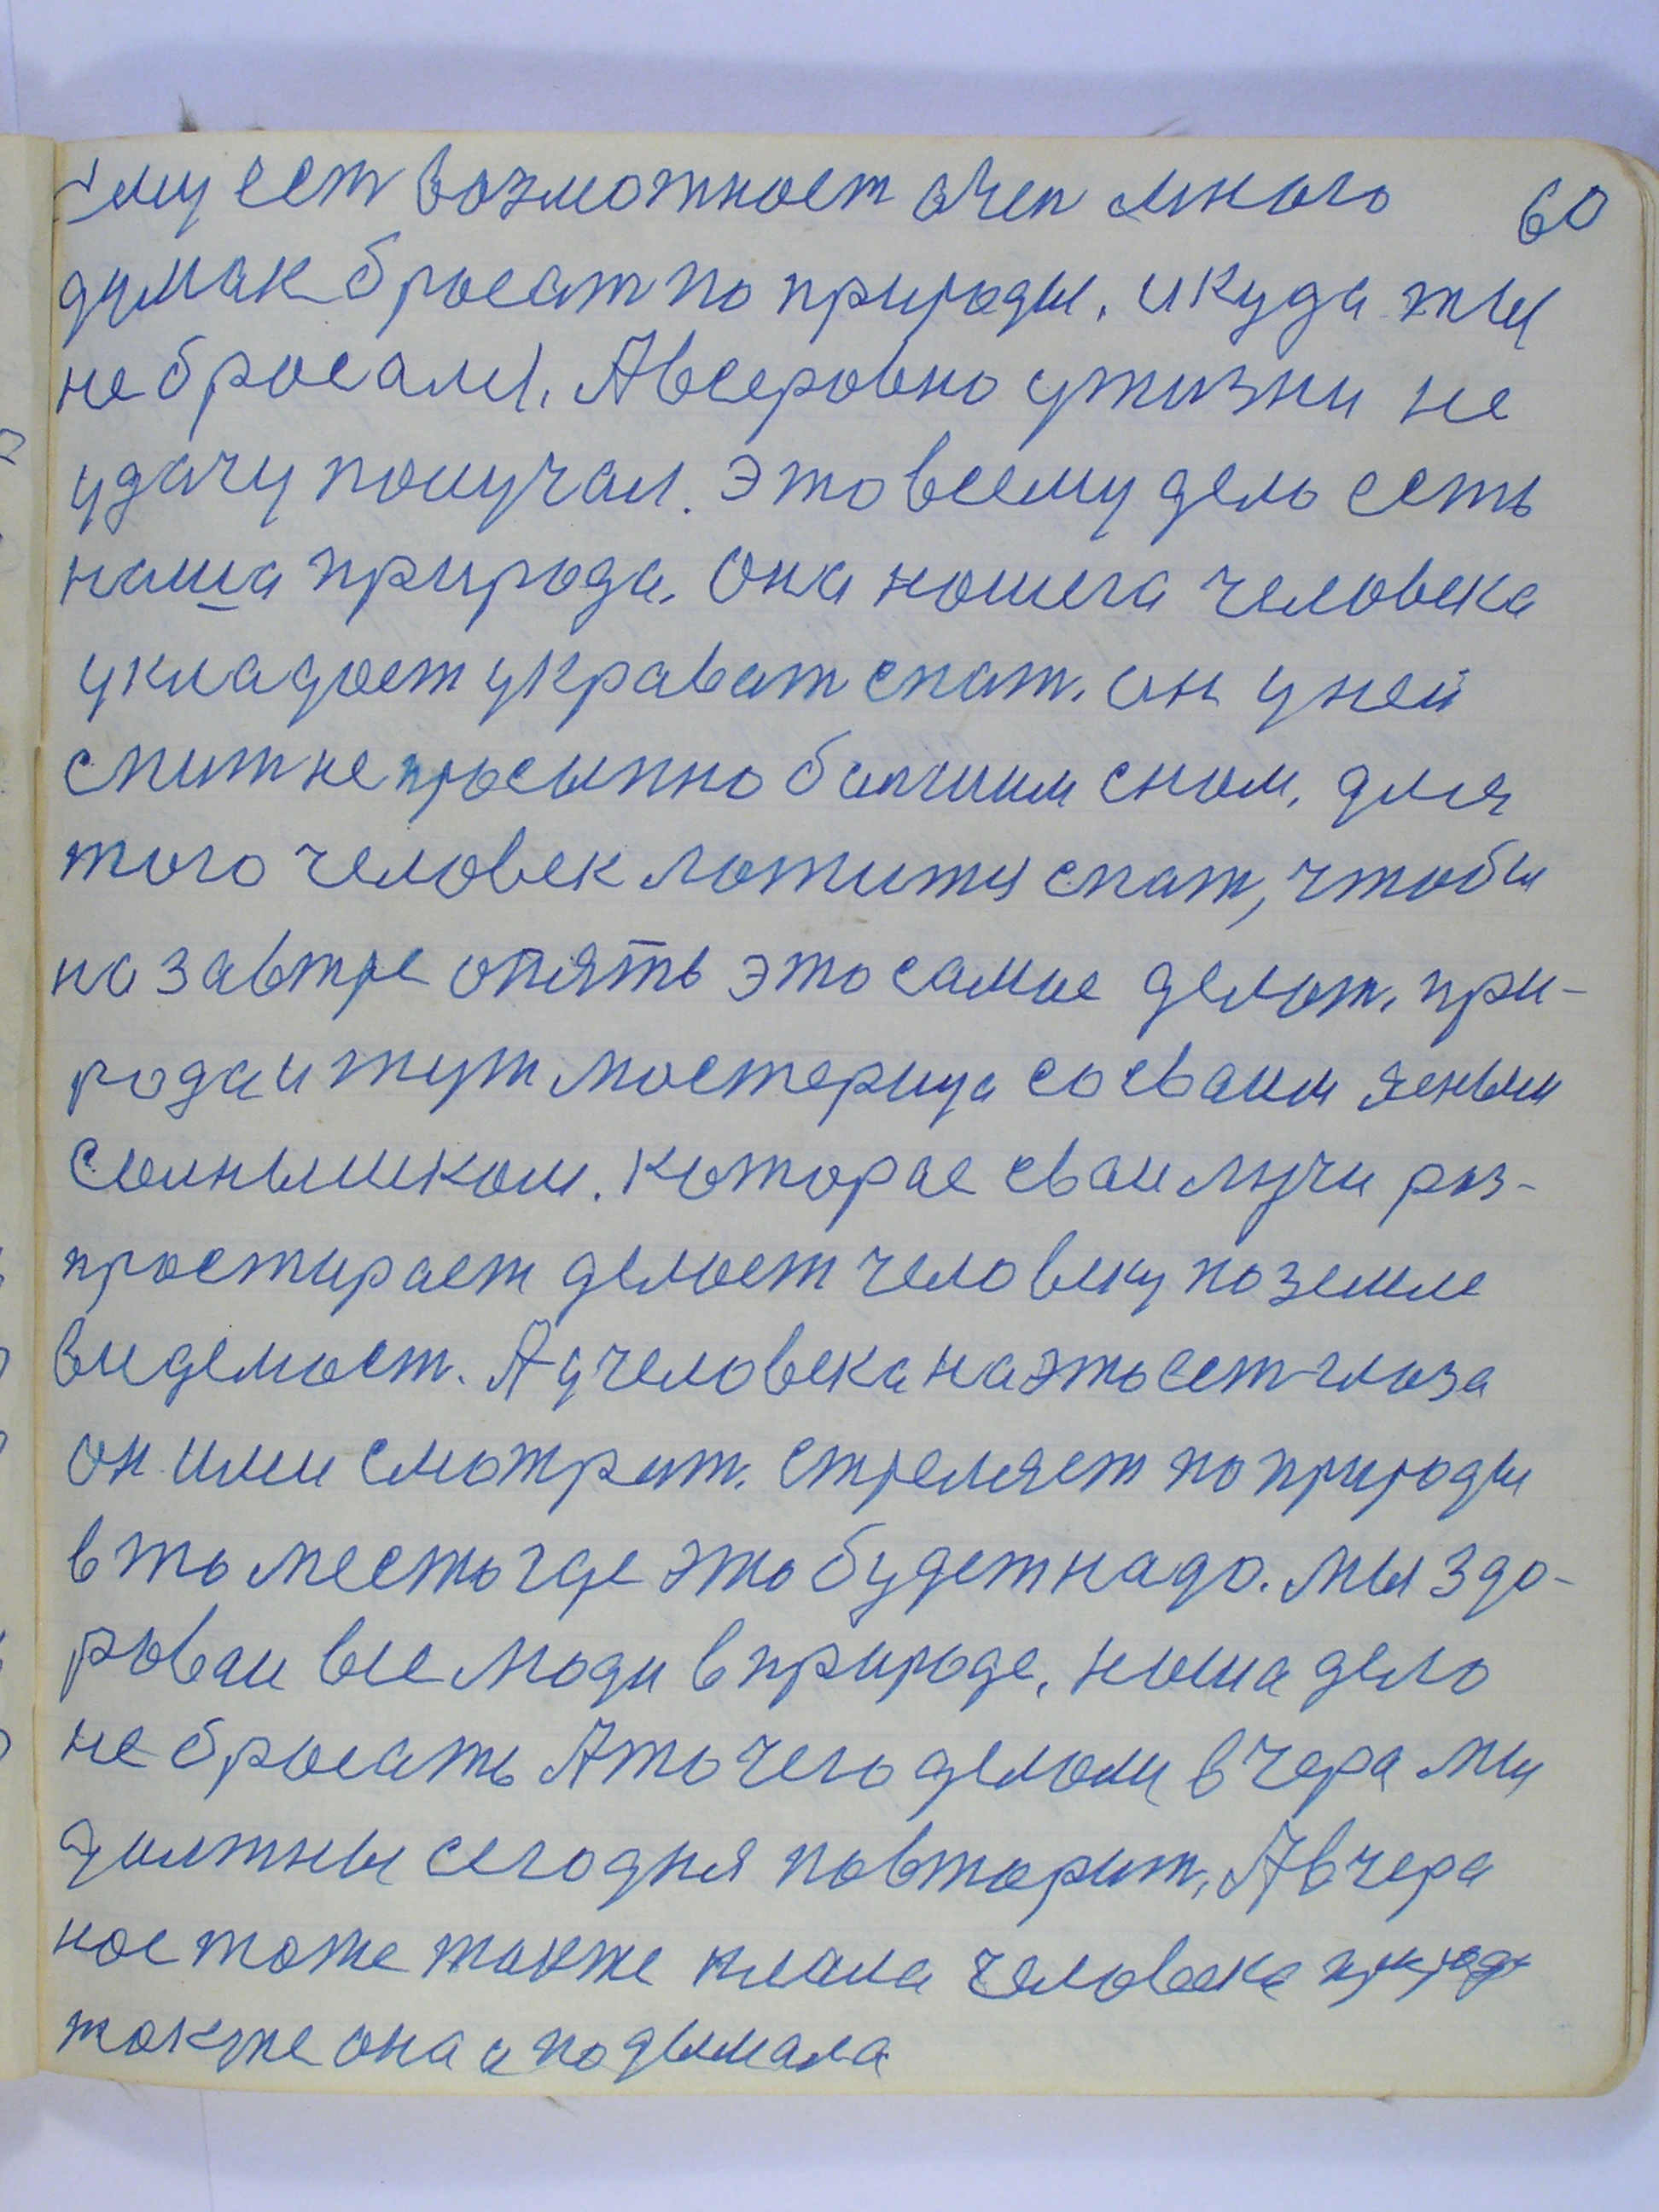 ему ест возможност очен много 60
думак бросат по природы. и куда ты
не бросалы. А всеровно ужизни не
удачу получал. Это всему дело есть
наша природа. Она нашега человека
укладоет укроват спат. он уней
спит не просыпно балшим сном. для
того человек ложится спат, чтобы
на завтре опять это самое делат. при-
рода и тут мостерица со сваим ясным
солнышком. которае сваи лучи рас-
простирает делоет человеку по земле
видемост. А учеловека на это ест глоза
он ими смотрит. стреляет по природы
в то место где это будет надо. мы здо-
роваи все люди в природе. наша дело
не бросать А то чего делоли вчера мы
должны сегодня повторит. А вчера
нос тоже также клала человека природа
также она и подымала